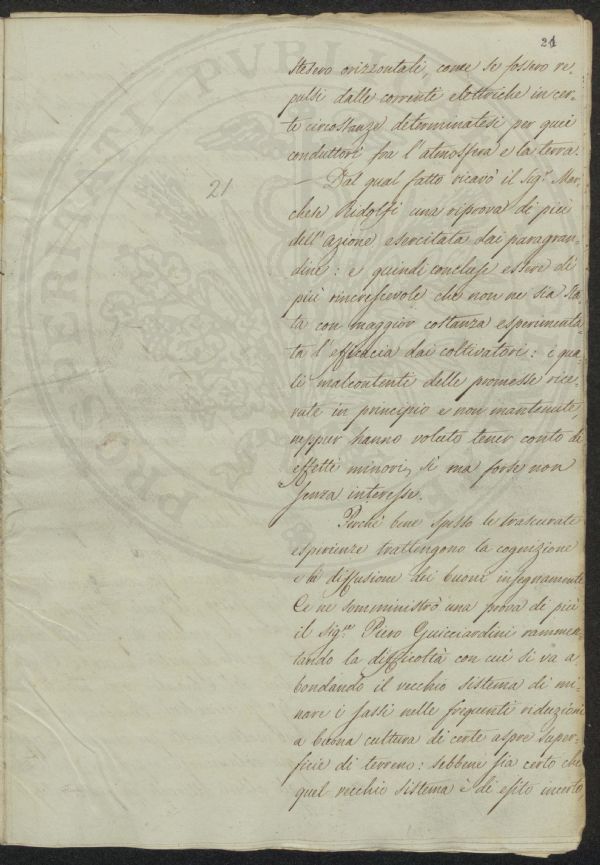 21
stesero orizzontali, come se fossero re-
pulsi dalle correnti elettriche in cer-
te circostanze determinatesi per quei
conduttori fra l'atmosfera e la terra.
21
— Dal qual fatto ricavò il Sigr. Mar-
chese Ridolfi una riprova di più
dell'azione esercitata dai paragran-
dini: e quindi concluse essere di
più rincrescevole che non ne sia sta-
ta con maggior costanza esperimenta-
ta l'efficacia dai coltivatori: i qua-
li malcontenti delle promesse rice-
vute in principio e non mantenute,
neppur hanno voluto tener conto di
effetti minori, sì ma forse non
senza interesse.
Perchè bene spesso le trascurate
esperienze trattengono la cognizione
e la diffusione dei buoni insegnamenti
Ce ne somministrò una prova di più
il Sigre. Piero Guicciardini rammen-
tando la difficoltà con cui si va a
bondando il vecchio sistema di mi-
nare i sassi nelle frequenti riduzioni
a buona cultura di certe aspre super-
ficie di terreno: sebbene sia certo che
quel vecchio sistema è di esito incerto,
PVBL
PROSPERITATI